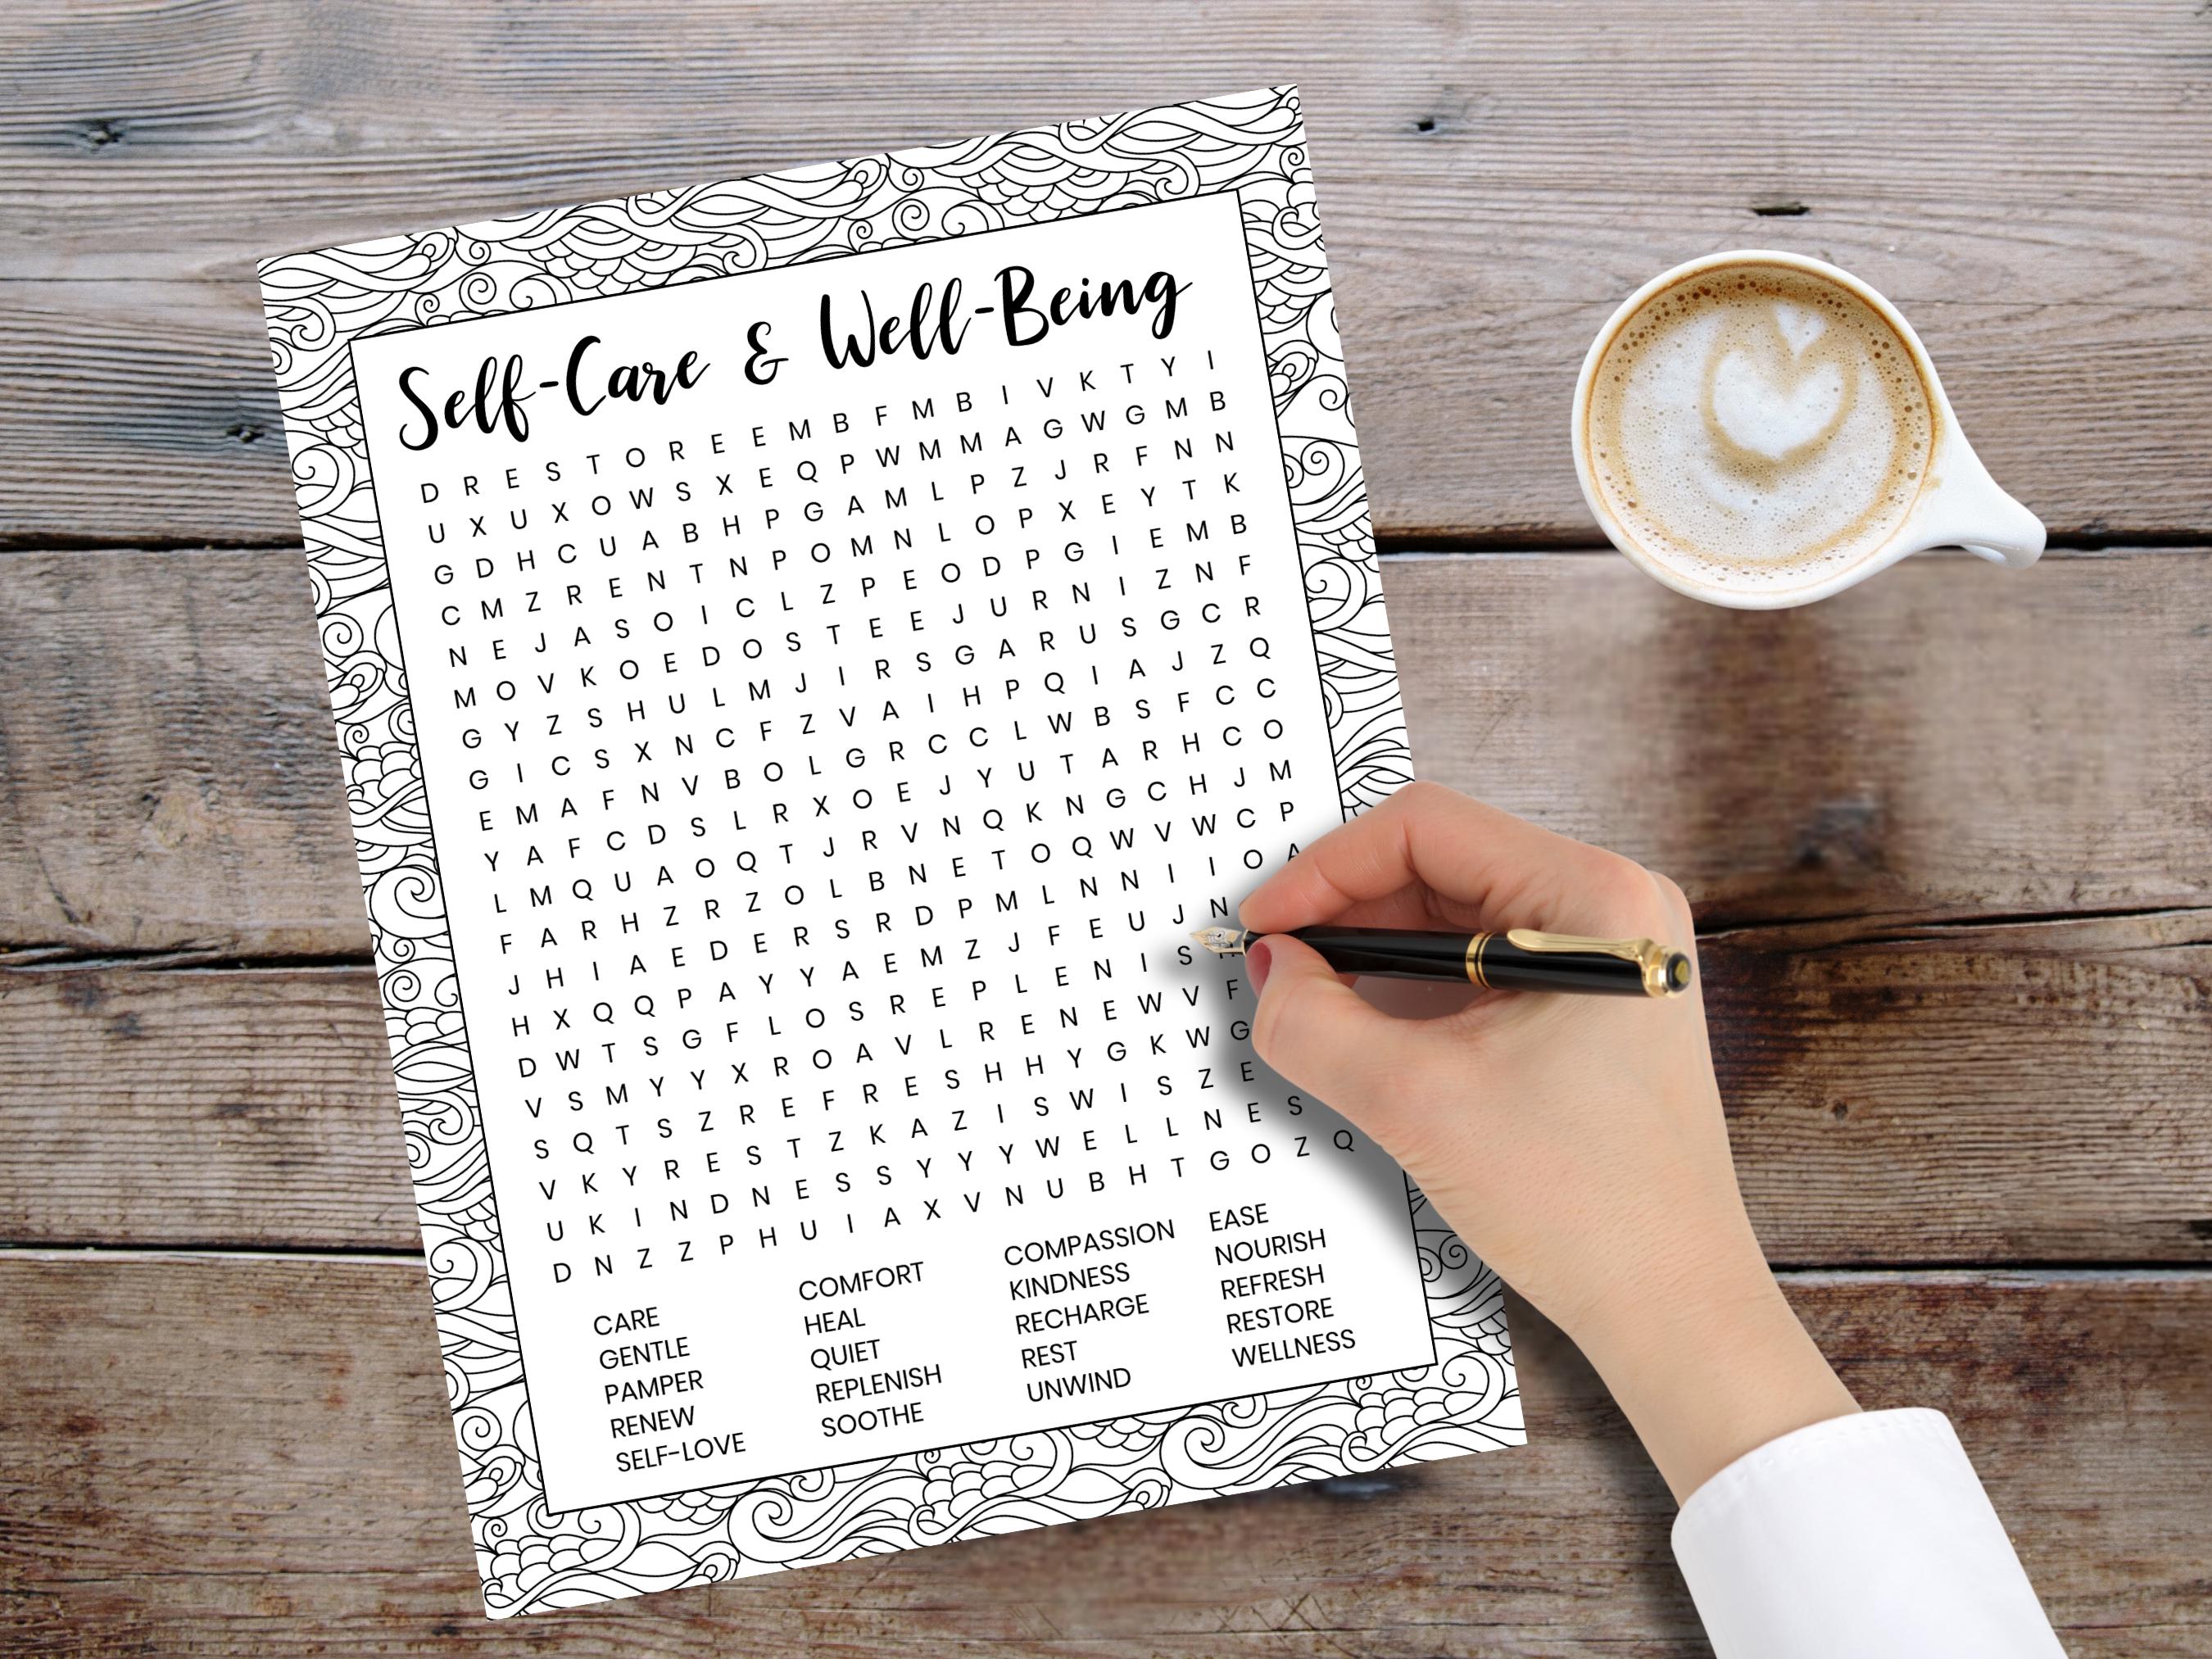 Self-Care & Well-Being
D R E S T O R E E M B F M B I V K T Y I
U X U X O W S X E Q P W M M A G W G M B
G D H C U A B H P G A M L P Z J R F N N
C M Z R E N T N P O M N L O P X E Y T K
N E J A S O I C L Z P E O D P G I E M B
M O V K O E D O S T E E J U R N I Z N F
G Y Z S H U L M J I R S G A R U S G C R
G I C S X N C F Z V A I H P Q I A J Z Q
E M A F N V B O L G R C C L W B S F C C
Y A F C D S L R X O E J Y U T A R H C O
L M Q U A O Q T J R V N Q K N G C H J M
F A R H Z R Z O L B N E T O Q W V W C P
J H I A E D E R S R D P M L N N I I O A
H X Q Q P A Y Y A E M Z J F E U J N
D W T S G F L O S R E P L E N I S
V S M Y Y X R O A V L R E N E W V F
S Q T S Z R E F R E S H H Y G K W G
V K Y R E S T Z K A Z I S W I S Z E
U K I N D N E S S Y Y Y W E L L N E S
D N Z Z P H U I A X V N U B H T G O Z Q
CARE
GENTLE
PAMPER
RENEW
SELF-LOVE
COMFORT
HEAL
QUIET
REPLENISH
SOOTHE
COMPASSION
KINDNESS
RECHARGE
REST
UNWIND
EASE
NOURISH
REFRESH
RESTORE
WELLNESS